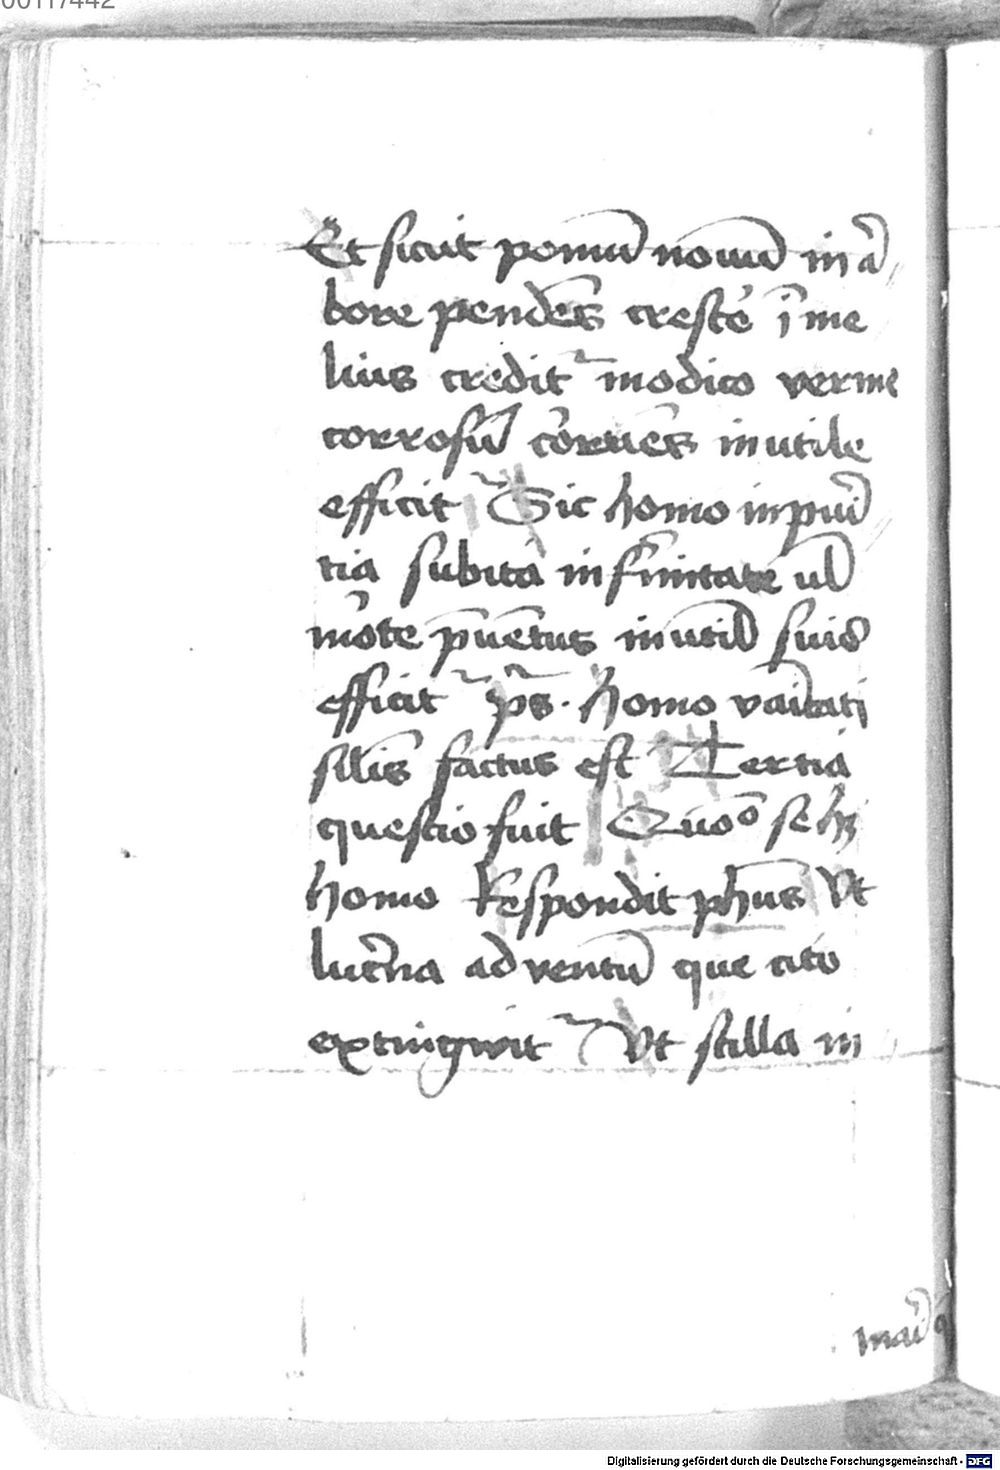 00117442
Et sicut pomū nouū in ar̄
bore pendēs crescēs ī me
lius credit᷑ modico verme
corrosū corruēs inutile
efficit᷑ Sic homo in puīr
tia subita infirmitate ul̄
morte p̄uētus inutil' suis
efficit᷑ p̄s. homo vanitati
silīs factus est Tertia
questio fuit Quoo se hȝ
homo Respondit ph̄us Vt
lucerna ad ventū que cito
extingwit᷑ Vt stilla in
Digitalisierung gefördert durch die Deutsche Forschungsgemeinschaft - DFG